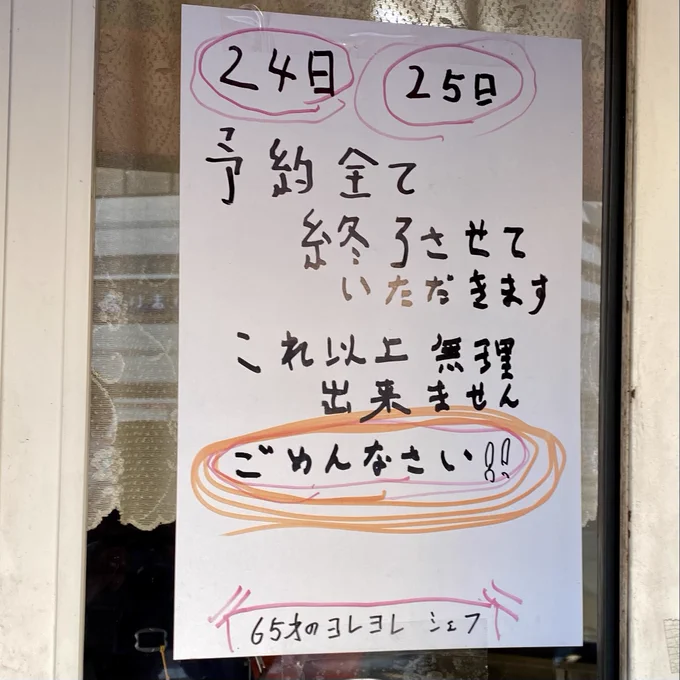 24日 25日
予約全て
終了させて
いただきます
これ以上無理
出来ません
ごめんなさい!!
65才のヨレヨレ シェフ